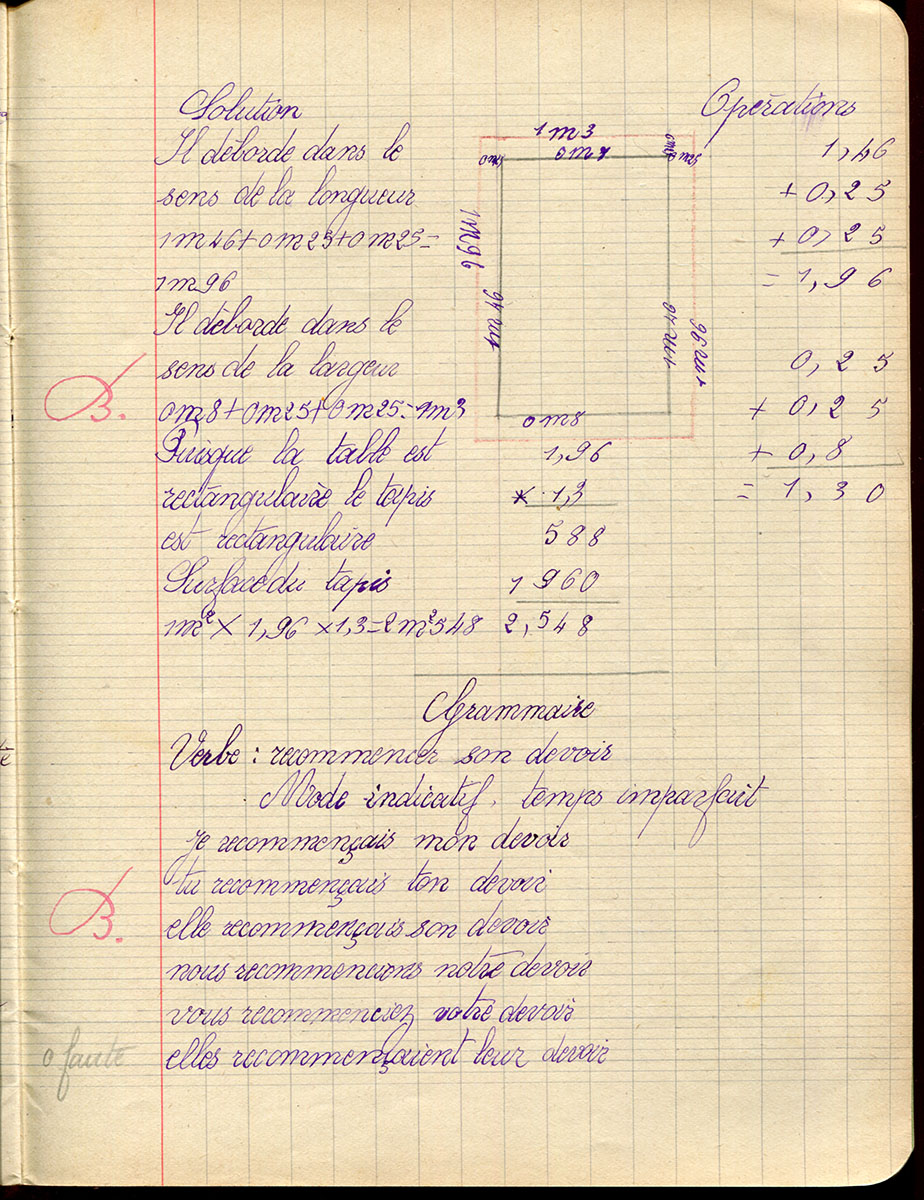 Solution
Il déborde dans le
sens de la longueur
1m46+0m25+0m25=
1m96
Il déborde dans le
sens de la largeur
0m8+0m25+0m25=1m3
Puisque la table est
rectangulaire le tapis
est rectangulaire
Surface du tapis
1m² × 1,96 × 1,3=2m²548
1m3
0m8
0m25
1m96
1m46
1m46
1m96
0m8
1,96
× 1,3
588
1 960
2,548
Opérations
1,46
+ 0,25
+ 0,25
= 1,96
0,25
+ 0,25
+ 0,8
= 1,30
B.
Grammaire
Verbe : recommencer son devoir
Mode indicatif, temps imparfait
je recommençais mon devoir
tu recommençais ton devoir
elle recommençais son devoir
nous recommencions notre devoir
vous recommenciez votre devoir
elles recommençaient leur devoir
B.
0 faute